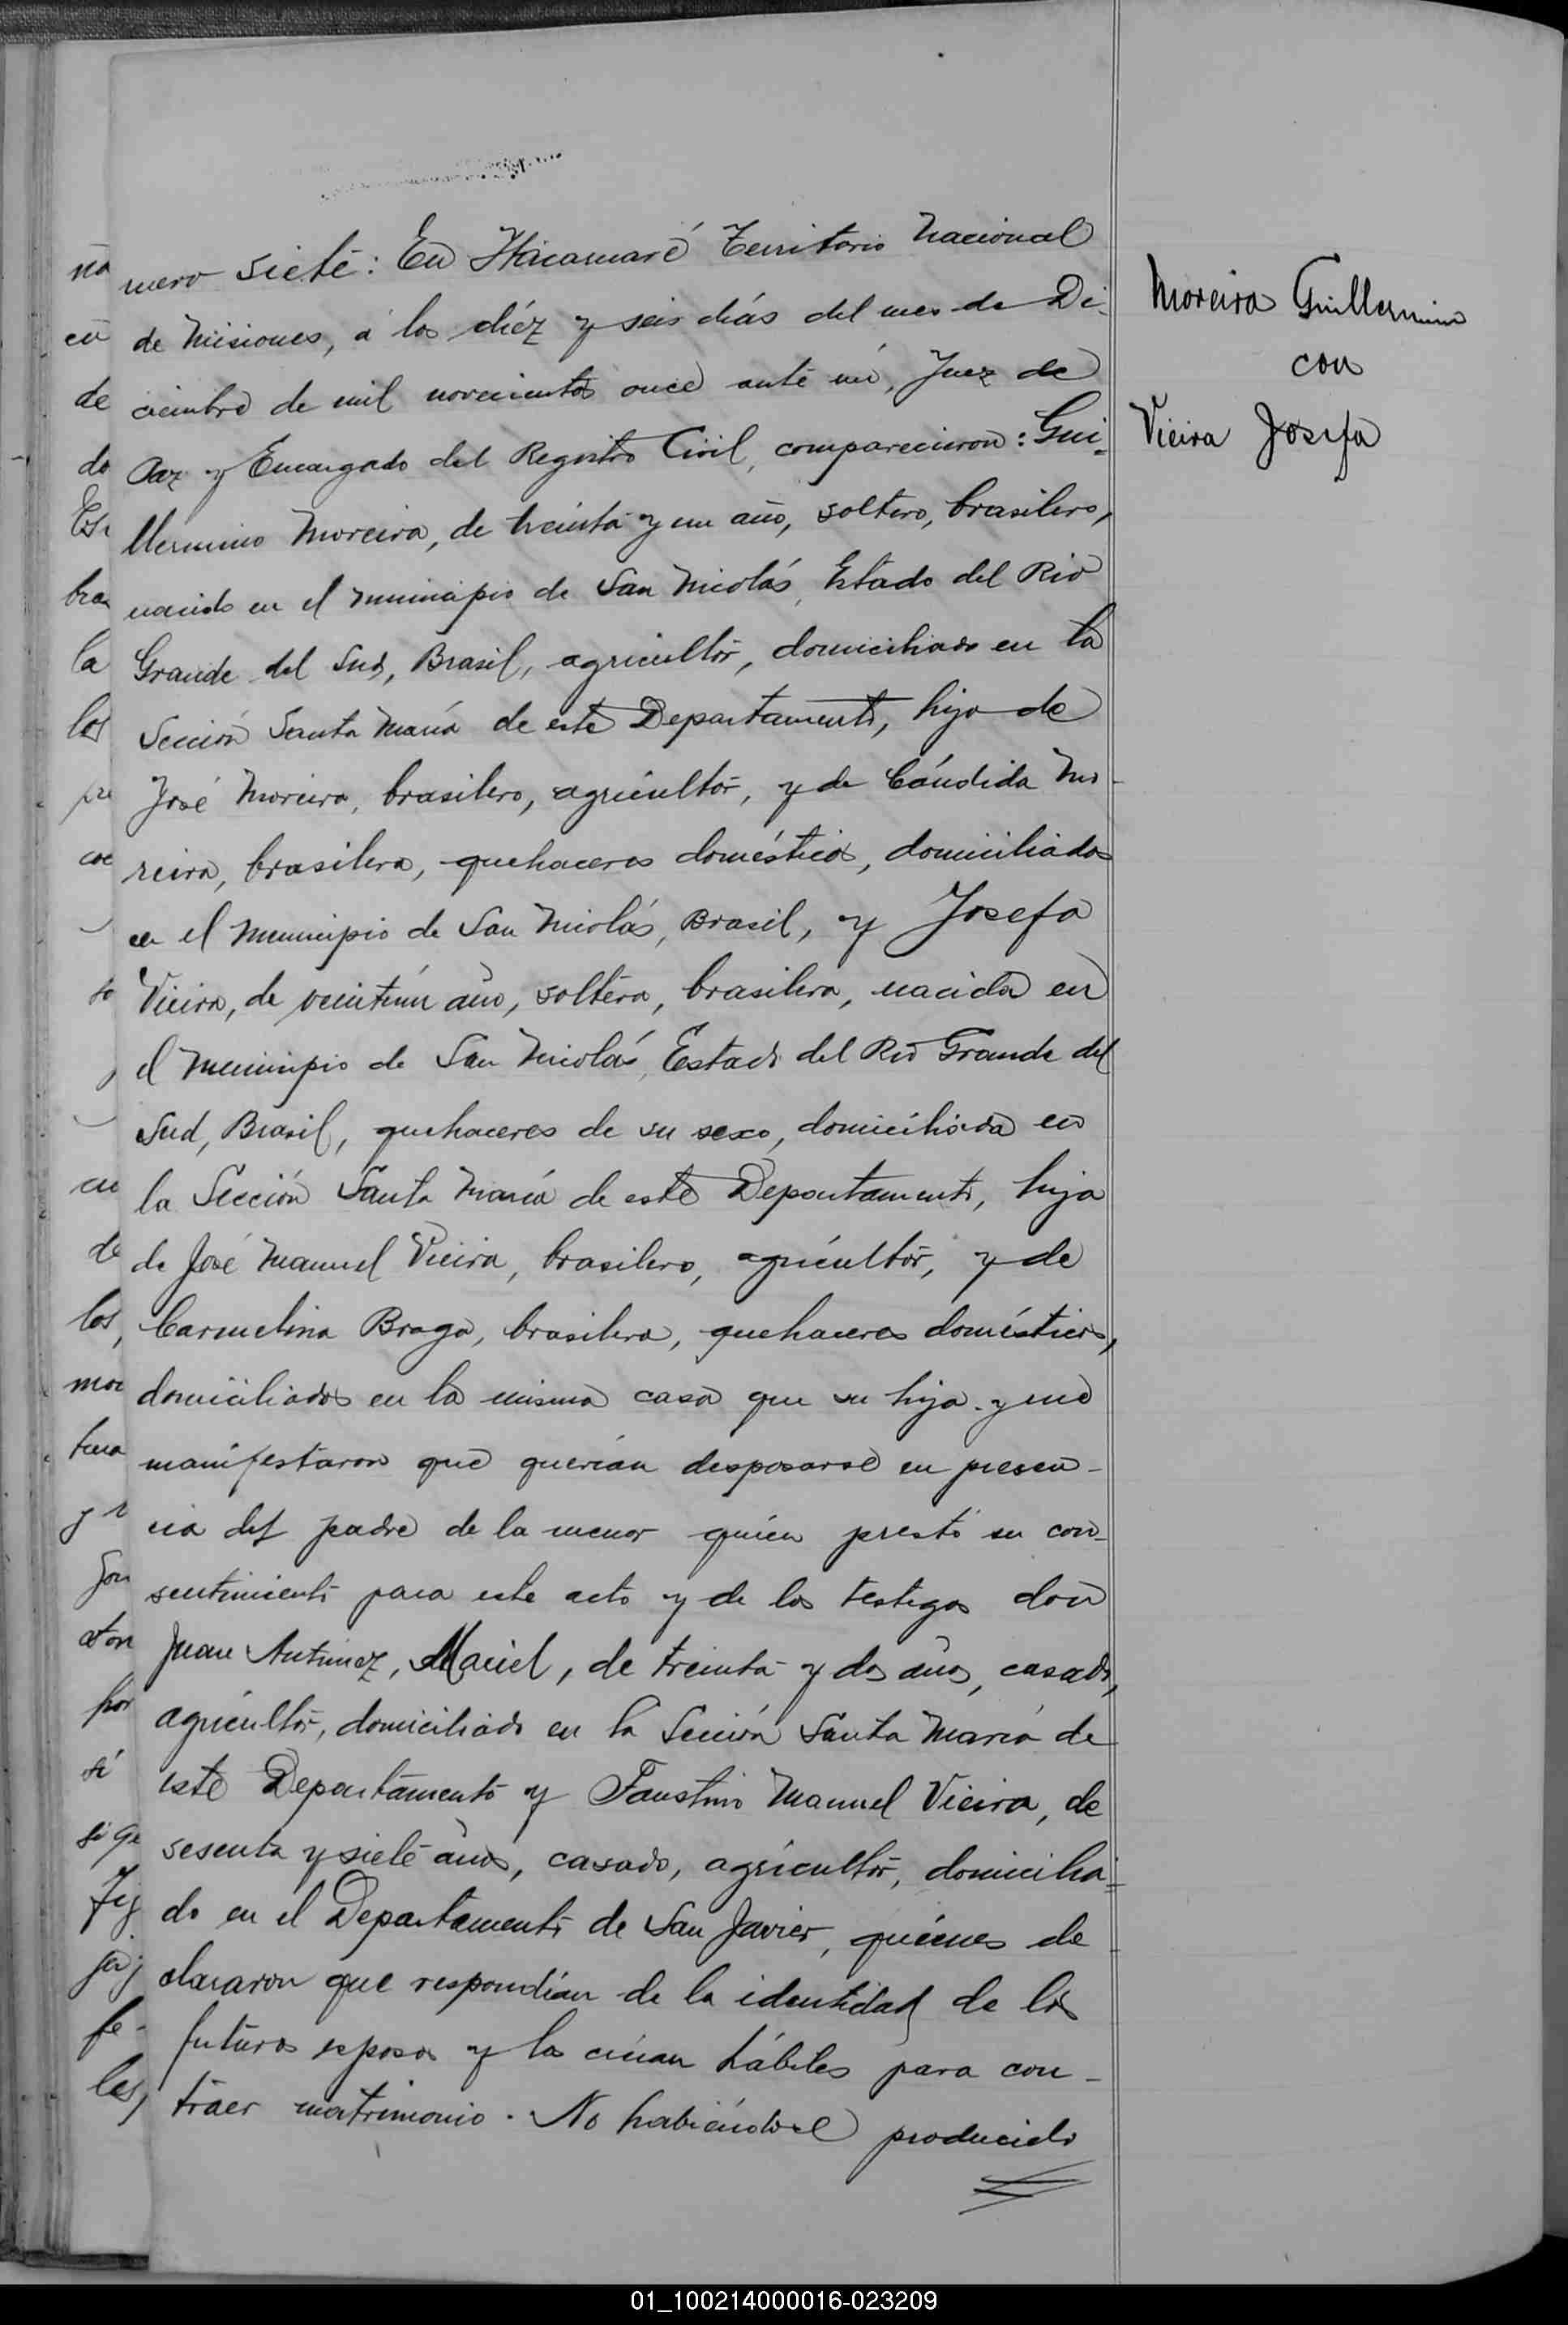 mero siete: En Itacaruaré Territorio Nacional
de Misiones, á los diéz y seis diás del mes de Di-
ciembre de mil novecientos once ante mí, Juez de
Paz y Encargado del Registro Civil, comparecieron: Gui-
llermino Moreira, de treinta y un año, soltero, brasilero,
nacido en el municipio de San Nicolás, Estado del Rio
Grande del Sud, Brasil, agricultor, domiciliado en la
Sección Santa María de este Departamento, hijo de
José Moreira, brasilero, agricultor, y de Cándida Mo-
reira, brasilera, quehaceres domésticos, domiciliados
en el municipio de San Nicolás, Brasil, y Josefa
Vieira, de veintiún año, soltera, brasilera, nacida en
el municipio de San Nicolás, Estado del Rio Grande del
Sud, Brasil, quehaceres de su sexo, domiciliada en
la Sección Santa María de este Departamento, hija
de José Manuel Vieira, brasilero, agricultor, y de
Carmelina Braga, brasilera, quehaceres domésticos,
domiciliados en la misma casa que su hija y me
manifestaron que querían desposarse en presen-
cia del padre de la menor quien prestó su con-
sentimiento para este acto y de los testigos don
Juan Antunez, Maciel, de treinta y dos años, casado,
agricultor, domiciliado en la Sección Santa María de
este Departamento y Faustino Manuel Vieira, de
sesenta y siete años, casado, agricultor, domicilia-
do en el Departamento de San Javier, quienes de-
clararon que respondían de la identidad de los
futuros esposos y los creían hábiles para con-
traer matrimonio. No habiéndose producido
Moreira Guillermino
con
Vieira Josefa
01_100214000016-023209